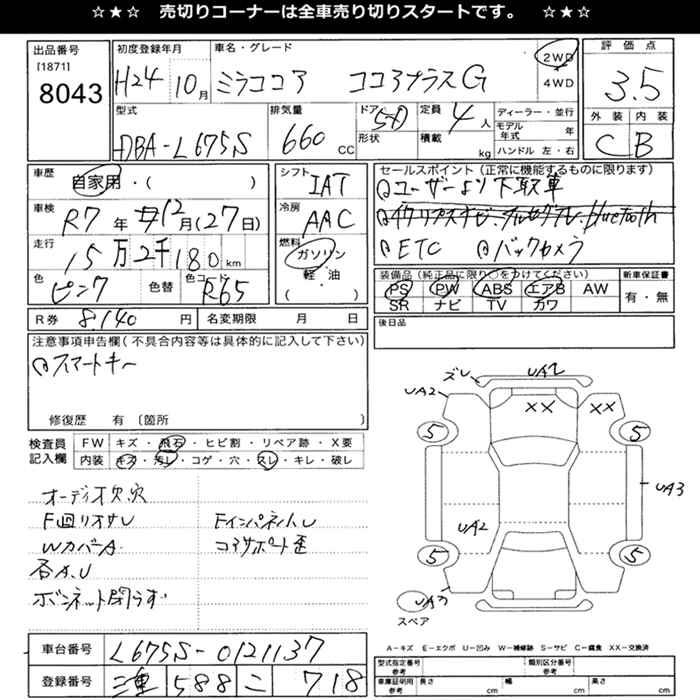 ☆★☆ 売切りコーナーは全車売り切りスタートです。 ☆★☆
出品番号 初度登録年月 車名・グレード 2WD 評価点
[1871] 8043 H24 10月 ミラココア ココアプラスG 4WD 3.5
型式 排気量 ドア 定員 ディーラー・並行 外装 内装
DBA-L675S 660 CC 5D 4人 モデル年式 年 C B
形状 積載 kg ハンドル 左・右
車歴 自家用・( ) シフト IAT セールスポイント(正常に機能するものに限ります)
ユーザーより下取車
車検 R7年 12月(27日) 冷房 AAC
Bluetooth
走行 15万2千180km 燃料 ガソリン 軽・油 ( ) ETC バックカメラ
色 ピンク 色替 色コード R65 装備品(純正品に限り○をつけてください) 新車保証書
PS PW ABS エアB AW 有・無
SR ナビ TV カワ
R券 8,140円 名変期限 月 日 後日品
注意事項申告欄(不具合内容等は具体的に記入して下さい)
スマートキー
修復歴 有〔箇所 〕
ズレ UA2
UA2 XX XX
5 5
検査員記入欄 FW キズ・飛石・ヒビ割・リペア跡・X要
内装 キズ・汚レ・コゲ・穴・スレ・キレ・破レ
UA3
オーディオ欠穴
F廻リオサU FインパネハU
WカバーA コアサポート歪
各A.U
ボンネット閉うす
UA2
5 5
UA3
スペア
A-キズ E-エクボ U-凹み W-補修跡 S-サビ C-腐食 XX-交換済
車台番号 L675S-0121137
型式指定番号 参考 類別区分番号 参考
登録番号 三重 588 こ 718
車庫証明用 参考 長さ cm 幅 cm 高さ cm